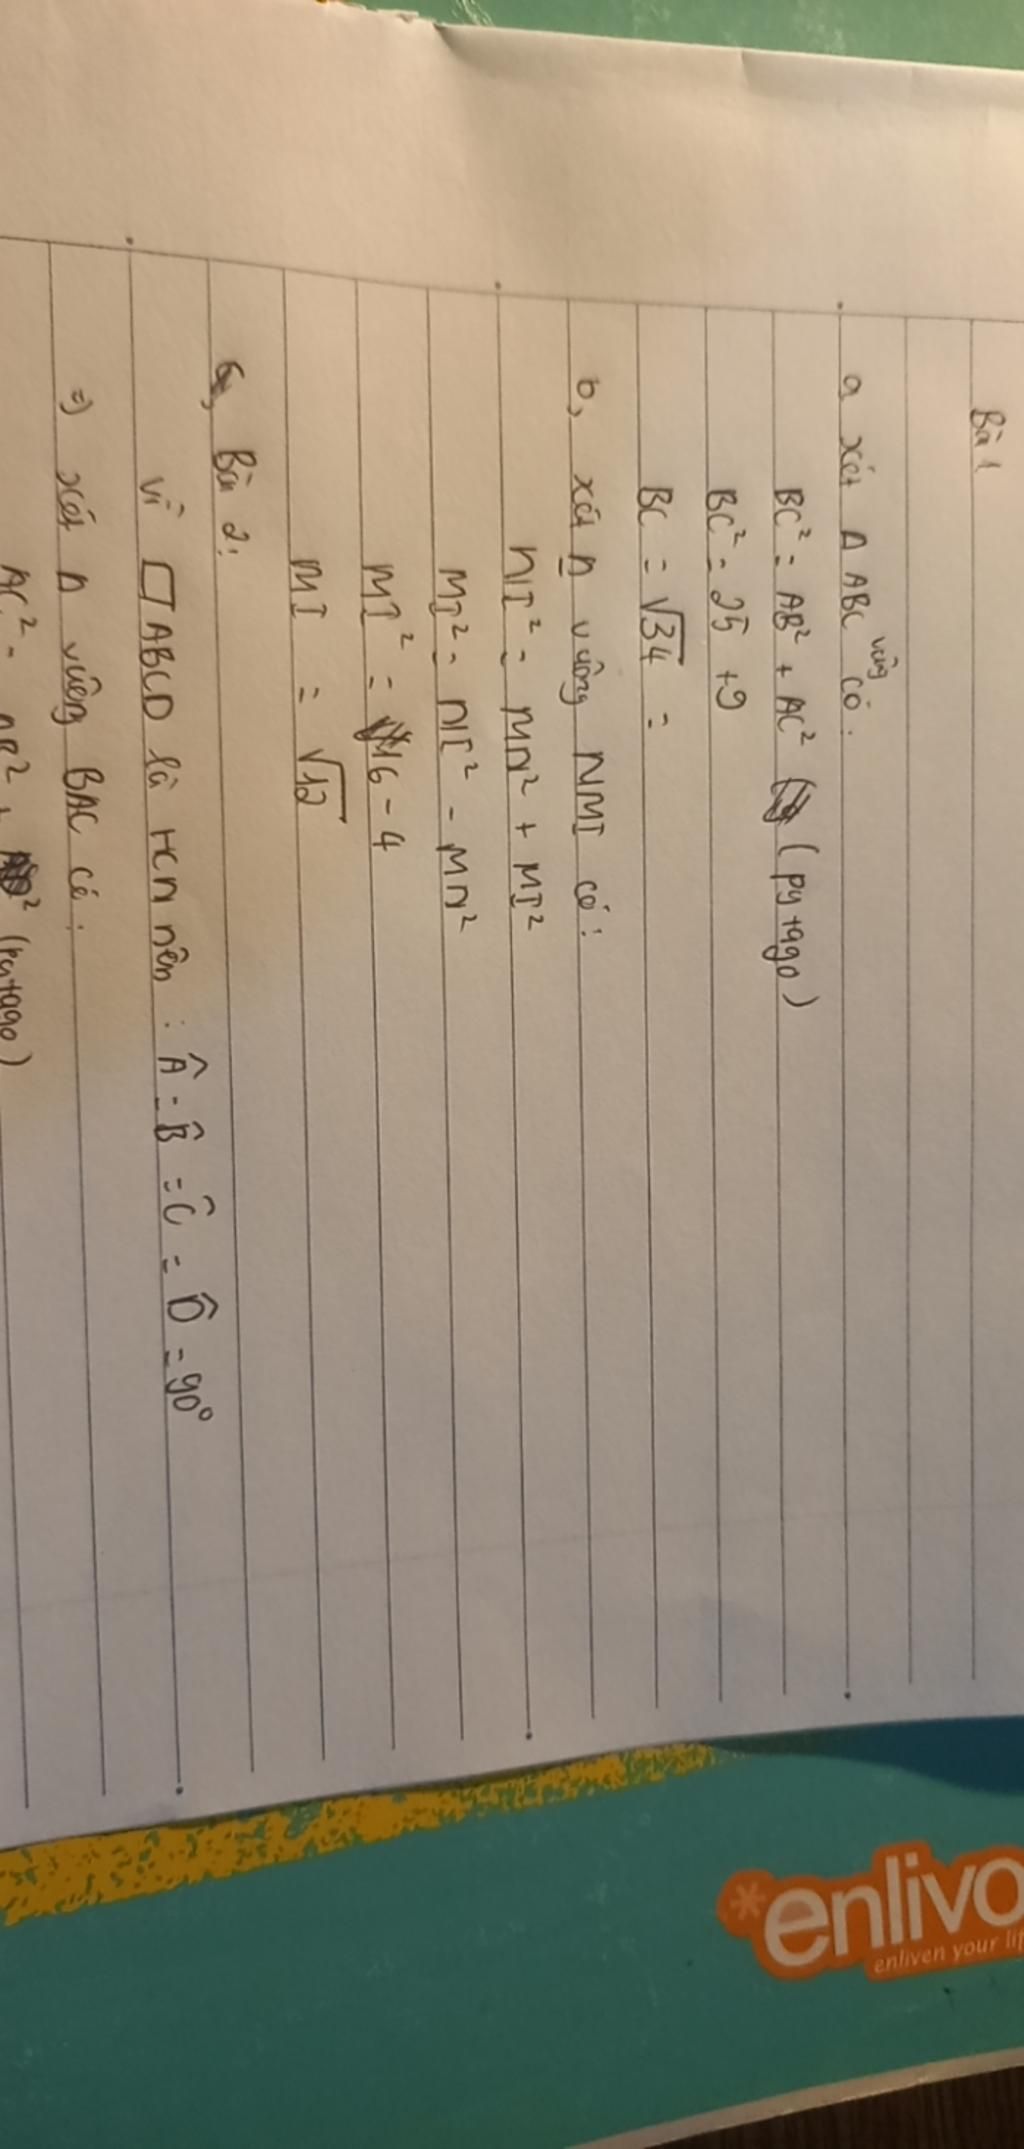 Bài 1
a xét Δ ABC vuông có:
BC² = AB² + AC² (pytago)
BC² = 25 + 9
BC = √34 =
b, xét Δ vuông NMI có:
NI² = MN² + MI²
MI² = NI² - MN²
MI² = 16 - 4
MI = √12
Bài 2:
Vì □ABCD là HCN nên : Â = B̂ = Ĉ = D̂ = 90°
=> xét Δ vuông BAC có:
AC² = AB² + ² (Pytago)
*enlivo
enliven your lif